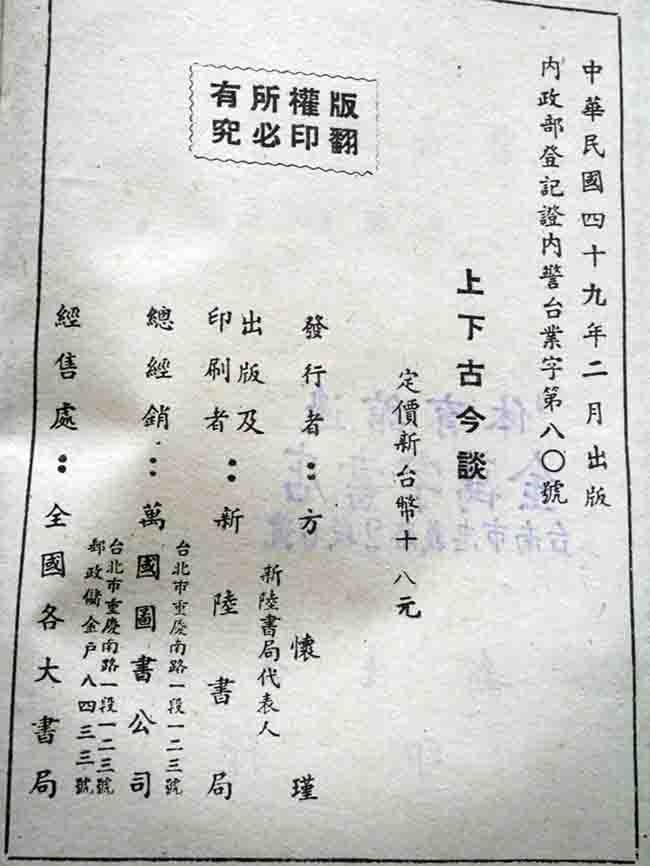 中華民國四十九年二月出版
內政部登記證內警台業字第八〇號
版權所有
翻印必究
上下古今談
定價新台幣十八元
發行者：方懷瑾
新陸書局代表人
出版及
印刷者：新陸書局
台北市重慶南路一段一二三號
總經銷：萬國圖書公司
台北市重慶南路一段一二三號
郵政儲金戶八四三三號
經售處：全國各大書局